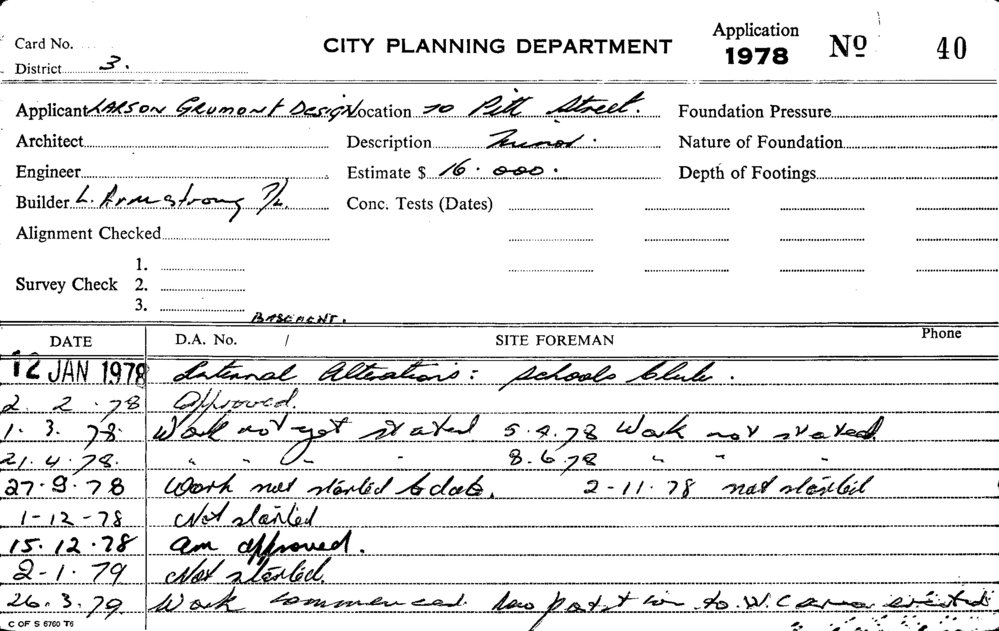 Application
CITY PLANNING DEPARTMENT 1978 No 40
Card No.
District 3.
Applicant LARSON GRUMONT DESIGN Location 70 Pitt Street. Foundation Pressure
Architect Description Minor. Nature of Foundation
Engineer Estimate $ 16.000. Depth of Footings
Builder L. Armstrong P/L. Conc. Tests (Dates)
Alignment Checked
1.
Survey Check 2.
3.
BASEMENT.
DATE D.A. No. / SITE FOREMAN Phone
12 JAN 1978 Internal Alterations: Schools Club.
2. 2. 78 Approved.
1. 3. 78. Work not yet started 5.4.78 Work not started.
21. 4. 78. " " " " 8.6.78 " " "
27.9.78 Work not started to date. 2-11.78 not started
1-12-78 Not started
15.12.78 am approved.
2-1.79 Not started.
26.3.79 Work commenced. to W.C area erected
C OF S 6760 T6